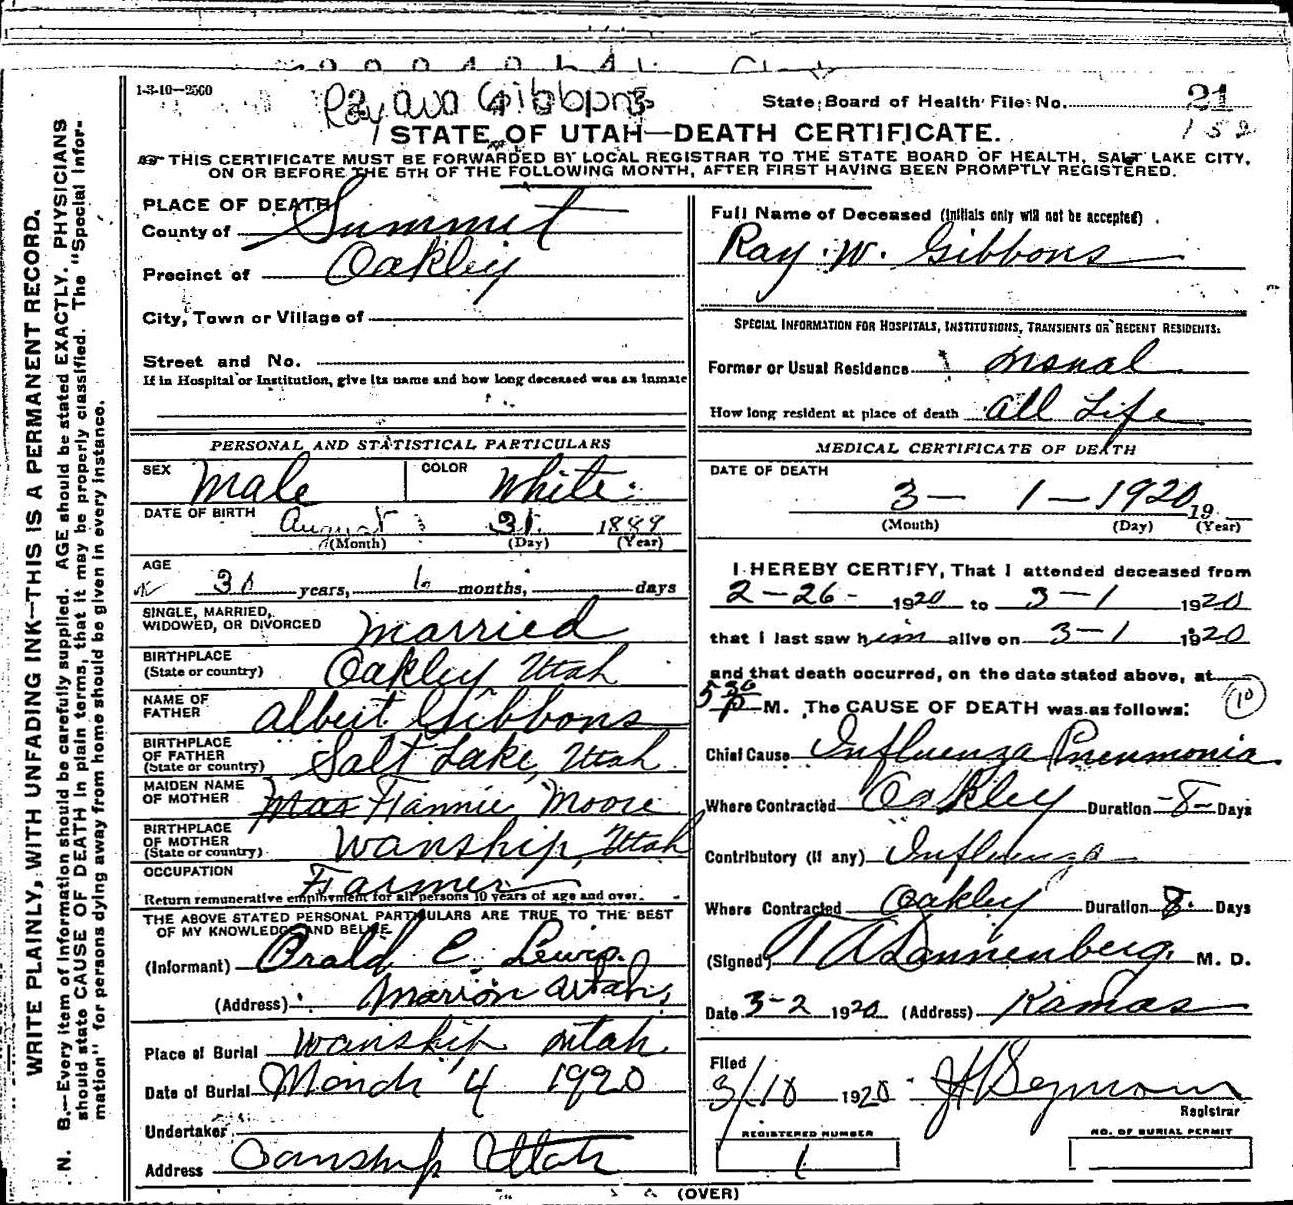 1-3-10—2560
Gibbons
State Board of Health File No. 21
152
STATE OF UTAH—DEATH CERTIFICATE.
THIS CERTIFICATE MUST BE FORWARDED BY LOCAL REGISTRAR TO THE STATE BOARD OF HEALTH, SALT LAKE CITY,
ON OR BEFORE THE 5TH OF THE FOLLOWING MONTH, AFTER FIRST HAVING BEEN PROMPTLY REGISTERED.
WRITE PLAINLY, WITH UNFADING INK—THIS IS A PERMANENT RECORD.
N. B.—Every item of information should be carefully supplied. AGE should be stated EXACTLY. PHYSICIANS
should state CAUSE OF DEATH in plain terms, that it may be properly classified. The "Special Infor-
mation" for persons dying away from home should be given in every instance.
PLACE OF DEATH
County of Summit
Precinct of Oakley
City, Town or Village of
Street and No.
If in Hospital or Institution, give its name and how long deceased was an inmate
PERSONAL AND STATISTICAL PARTICULARS
SEX Male COLOR White
DATE OF BIRTH August 31 1889
(Month) (Day) (Year)
AGE
30 years, 6 months, days
SINGLE, MARRIED,
WIDOWED, OR DIVORCED Married
BIRTHPLACE
(State or country) Oakley Utah
NAME OF
FATHER Albert Gibbons
BIRTHPLACE
OF FATHER
(State or country) Salt Lake, Utah
MAIDEN NAME
OF MOTHER Fannie Moore
BIRTHPLACE
OF MOTHER
(State or country) Wanship, Utah
OCCUPATION Farmer
Return remunerative employment for all persons 10 years of age and over.
THE ABOVE STATED PERSONAL PARTICULARS ARE TRUE TO THE BEST
OF MY KNOWLEDGE AND BELIEF
(Informant) Orald C. Lewis.
(Address) Marion Utah.
Place of Burial Wanship Utah.
Date of Burial March 4 1920
Undertaker
Address Wanship Utah
Full Name of Deceased (Initials only will not be accepted)
Ray W. Gibbons
SPECIAL INFORMATION FOR HOSPITALS, INSTITUTIONS, TRANSIENTS OR RECENT RESIDENTS.
Former or Usual Residence usual
How long resident at place of death all Life
MEDICAL CERTIFICATE OF DEATH
DATE OF DEATH
3— 1—1920 19
(Month) (Day) (Year)
I HEREBY CERTIFY, That I attended deceased from
2-26- 1920 to 3-1 1920
that I last saw him alive on 3-1 1920
and that death occurred, on the date stated above, at
5 30 P M. The CAUSE OF DEATH was as follows: 10
Chief Cause Influenza Pneumonia
Where Contracted Oakley Duration -8- Days
Contributory (if any) Influenza
Where Contracted Oakley Duration 8. Days
(Signed) Dannenberg. M. D.
Date 3-2 1920 (Address) Kamas
Filed
3/10 1920 J H Seymour
Registrar
REGISTERED NUMBER
1
NO. OF BURIAL PERMIT
(OVER)